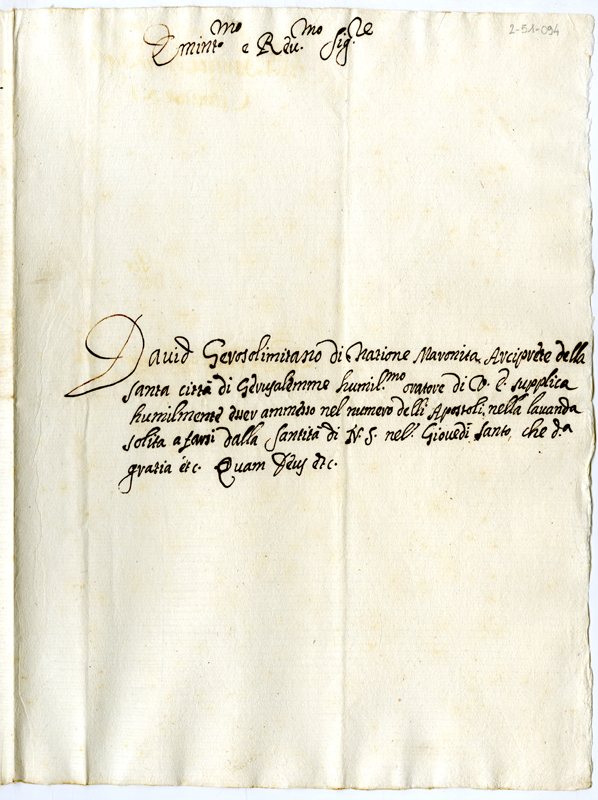 2-51-094
Emint.mo e Reu.mo Sig.re
Dauid Gerosolimitano di Natione Maronita Arciprete della
santa città di Gerusalemme humil.mo oratore di V. E. supplica
humilmente esser ammesso nel numero delli Apostoli, nella lauanda
solita a farsi dalla Santità di N. S. nel Giouedì santo, che d.a
gratia etc. Quam Deus etc.